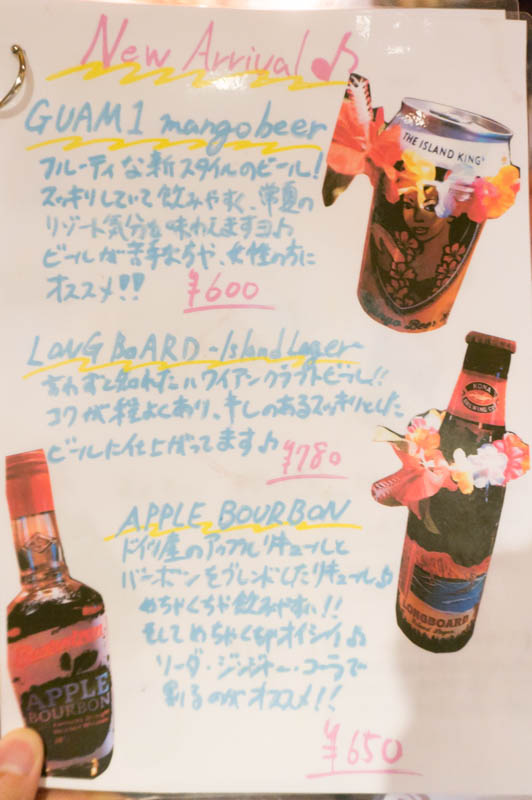 New Arrival♪
GUAM1 mango beer
フルーティな新スタイルのビール!
スッキリしていて飲みやすく、常夏の
リゾート気分を味わえますヨ♪
ビールが苦手な方や、女性の方に
オススメ!!
¥600
THE ISLAND KING
LONG BOARD -Island Lager-
言わずと知れたハワイアンクラフトビール!!
コクが程よくあり、キレのあるスッキリとした
ビールに仕上がってます♪
¥780
KONA
BREWING CO.
LONGBOARD
Island Lager
APPLE BOURBON
ドイツ産のアップルリキュールと
バーボンをブレンドしたリキュール♪
めちゃくちゃ飲みやすい!!
そしてめちゃくちゃオイシイ♪
ソーダ・ジンジャー・コーラで
割るのがオススメ!!
¥650
APPLE
BOURBON